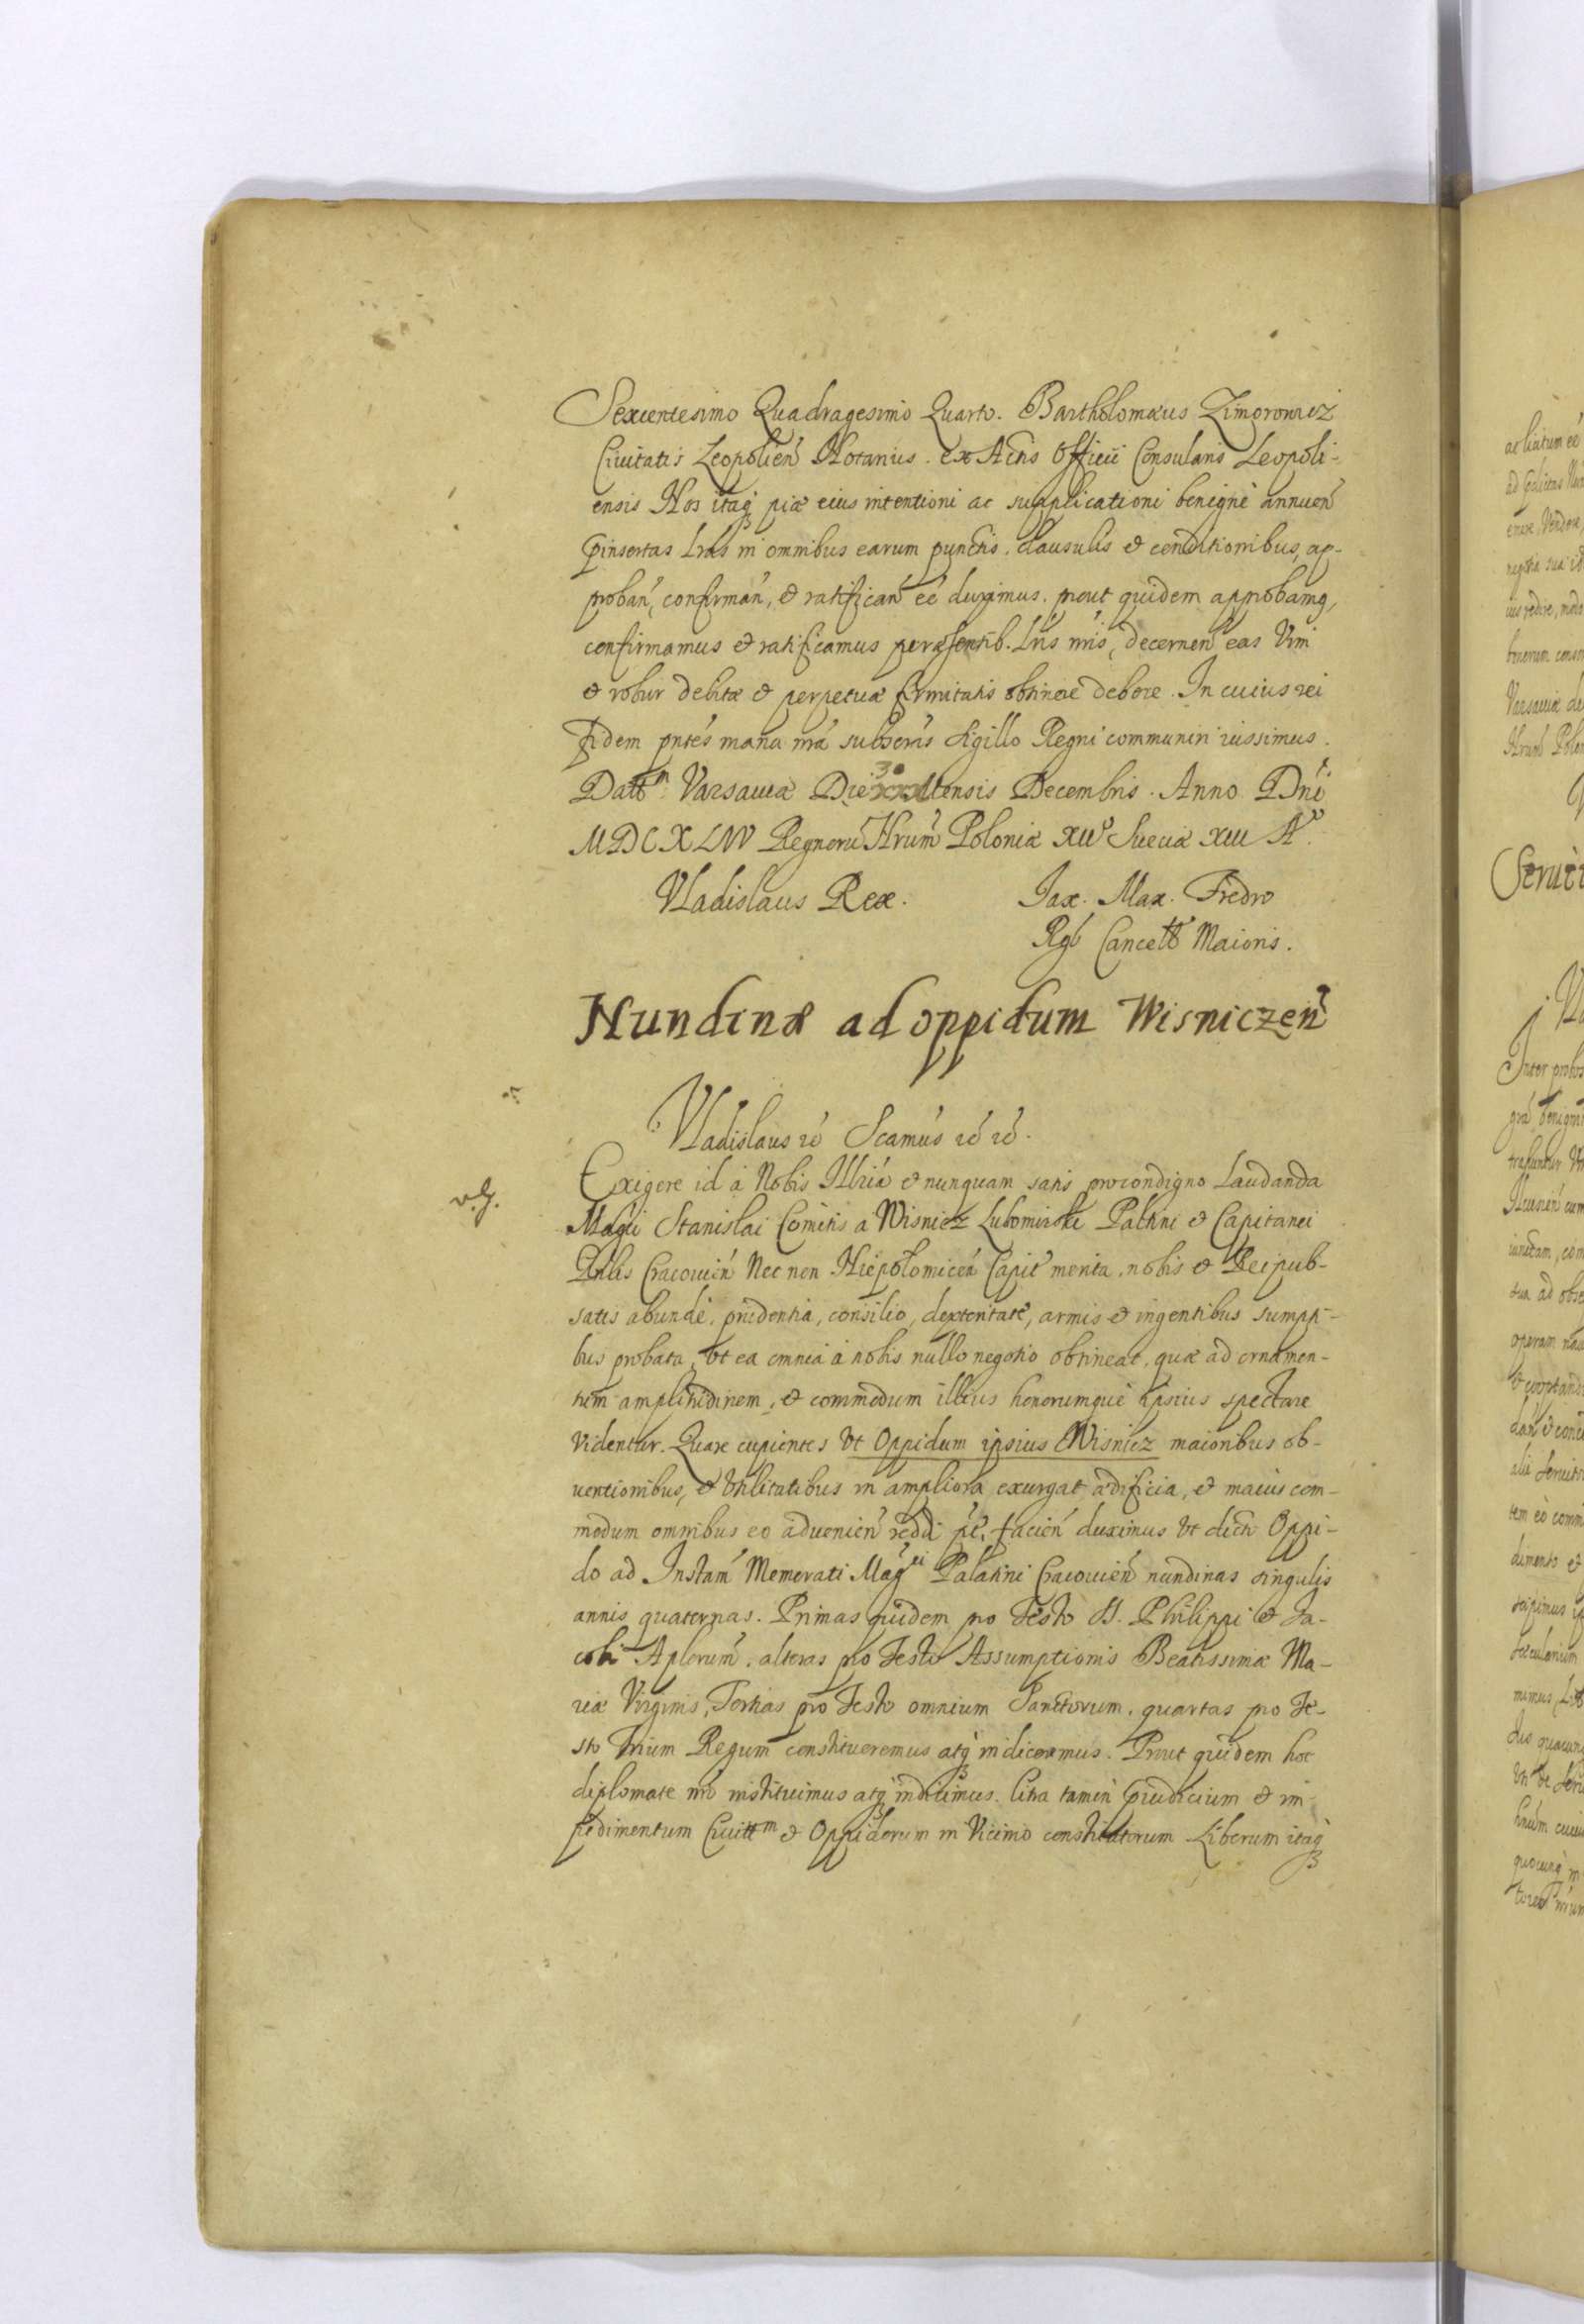 Sexcentesimo Quadragesimo Quarto. Bartholomæus Zimorowicz
Ciuitatis Leopolien̄ Notarius. ex Actis Officii Consularis Leopoli-
ensis Nos itaq piæ eius intentioni ac supplicationi benignè annuen̄
p̄insertas Lras in omnibus earum punctis, clausulis et conditionibus, ap-
proban̄, confirman̄, et ratifican̄ eē duximus. prout quidem approbamq,
confirmamus et ratificamus peræsentib. Lris nris, decernen̄ eas Vim
et robur debitæ et perpetuæ firmitatis obtinere debere. In cuius rei
fidem pntēs manu nrā subscrās Sigillo Regni communiri iussimus.
Datt Varsauiæ Die 30 Mensis Decembris. Anno Dni
MDCXLIV Regnorū Nrum̄ Poloniæ XII Sueciæ XIII A°.
Vladislaus Rex. Jax. Max. Fredro
Rgs Cancell Maioris.
Nundinæ ad oppidum Wisniczen̄
Vladislaus rc̄ Scamūs rc̄ rc̄.
Exigere id à Nobis Illria et nunquam satis pro condigno Laudanda
v.g.
Magci Stanislai Comitis a Wisnicz Lubomirski Palatni et Capitanei
Gnlis Cracouien̄ Nec non Niepolomicen̄ Capit merita, nobis et Reipub-
satis abundè, prudentia, consilio, dexteritate, armis et ingentibus sumpti-
bus probata, Vt ea omnia à nobis nullo negotio obtineat, quæ ad ornamen-
tum amplitudinem, et commodum illius honorumque ipsius spectare
Videntur. Quare cupientes Vt Oppidum ipsius Wisnicz maioribus ob-
uentionibus, et Vtilitatibus in ampliora exurgat ædificia, et maius com-
modum omnibus eo aduenien̄ reddi pt̄, facien̄ duximus Vt dicto Oppi-
do ad Instam̄ Memorati Magci Palatini Cracouien̄ nundinas singulis
annis quaternas. Primas quidem pro Festo SS. Philippi et Ja-
cobi Aplorum̄. alteras pro Festo Assumptionis Beatissimæ Ma-
riæ Virginis, Tertias pro Festo omnium Sanctorum, quartas pro Fe-
sto Trium Regum constitueremus atq indiceremus. Prout quidem hoc
diplomate nrō instituimus atq indicimus. Citra tamen p̄iudicium et im-
pedimentum Ciuittm et Oppidorum in Vicino constitutorum Liberum itaq